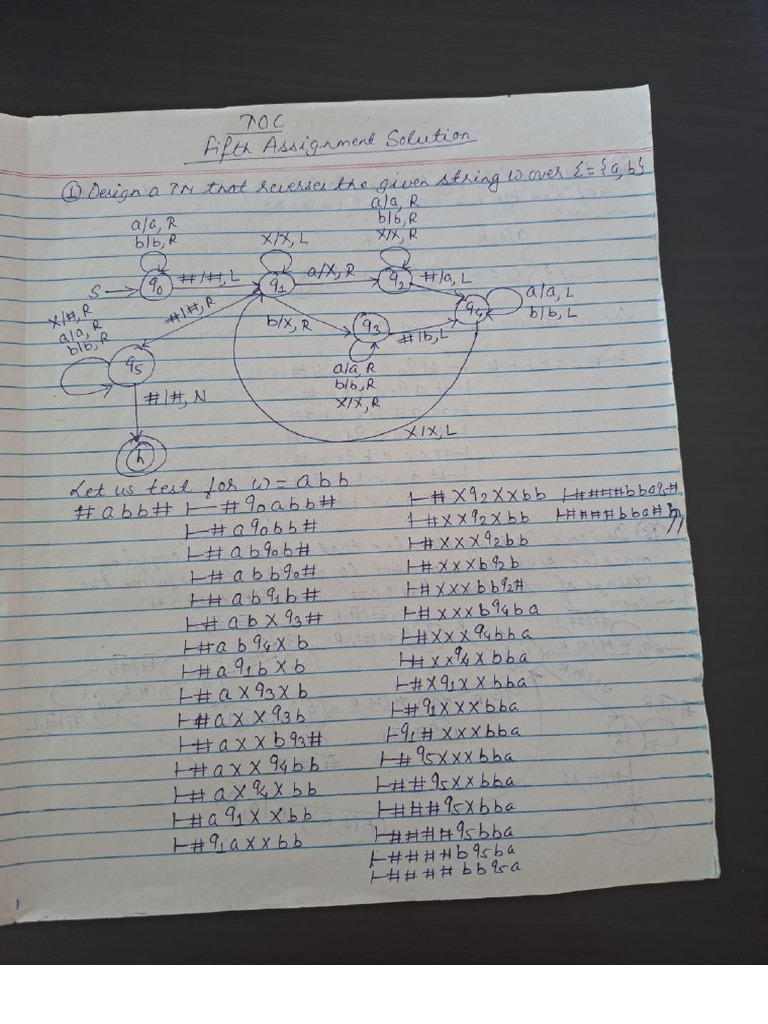 TOC
Fifth Assignment Solution
① Design a TM that reverses the given string w over Σ={a,b}
a/a, R
b/b, R
X/X, L
a/a, R
b/b, R
X/X, R
S
q0
#/#, L
q1
a/X, R
q2
#/a, L
q4
a/a, L
b/b, L
X/#, R
a/a, R
b/b, R
#/#, R
b/X, R
q3
#/b, L
q5
a/a, R
b/b, R
X/X, R
#/#, N
X/X, L
h
Let us test for w = abb
#abb# ⊢ #q0abb#
⊢#aq0bb#
⊢#abq0b#
⊢#abbq0#
⊢#abq1b#
⊢#abXq3#
⊢#abq4Xb
⊢#aq1bXb
⊢#aXq3Xb
⊢#aXXq3b
⊢#aXXbq3#
⊢#aXXq4bb
⊢#aXq4Xbb
⊢#aq1XXbb
⊢#q1aXXbb
⊢#Xq2XXbb
⊢#XXq2Xbb
⊢#XXXq2bb
⊢#XXXbq2b
⊢#XXXbbq2#
⊢#XXXbq4ba
⊢#XXXq4bba
⊢#XXq4Xbba
⊢#Xq1XXbba
⊢#q1XXXbba
⊢q1#XXXbba
⊢#q5XXXbba
⊢##q5XXbba
⊢###q5Xbba
⊢####q5bba
⊢####bq5ba
⊢####bbq5a
⊢####bbaq5#
⊢####bba#h